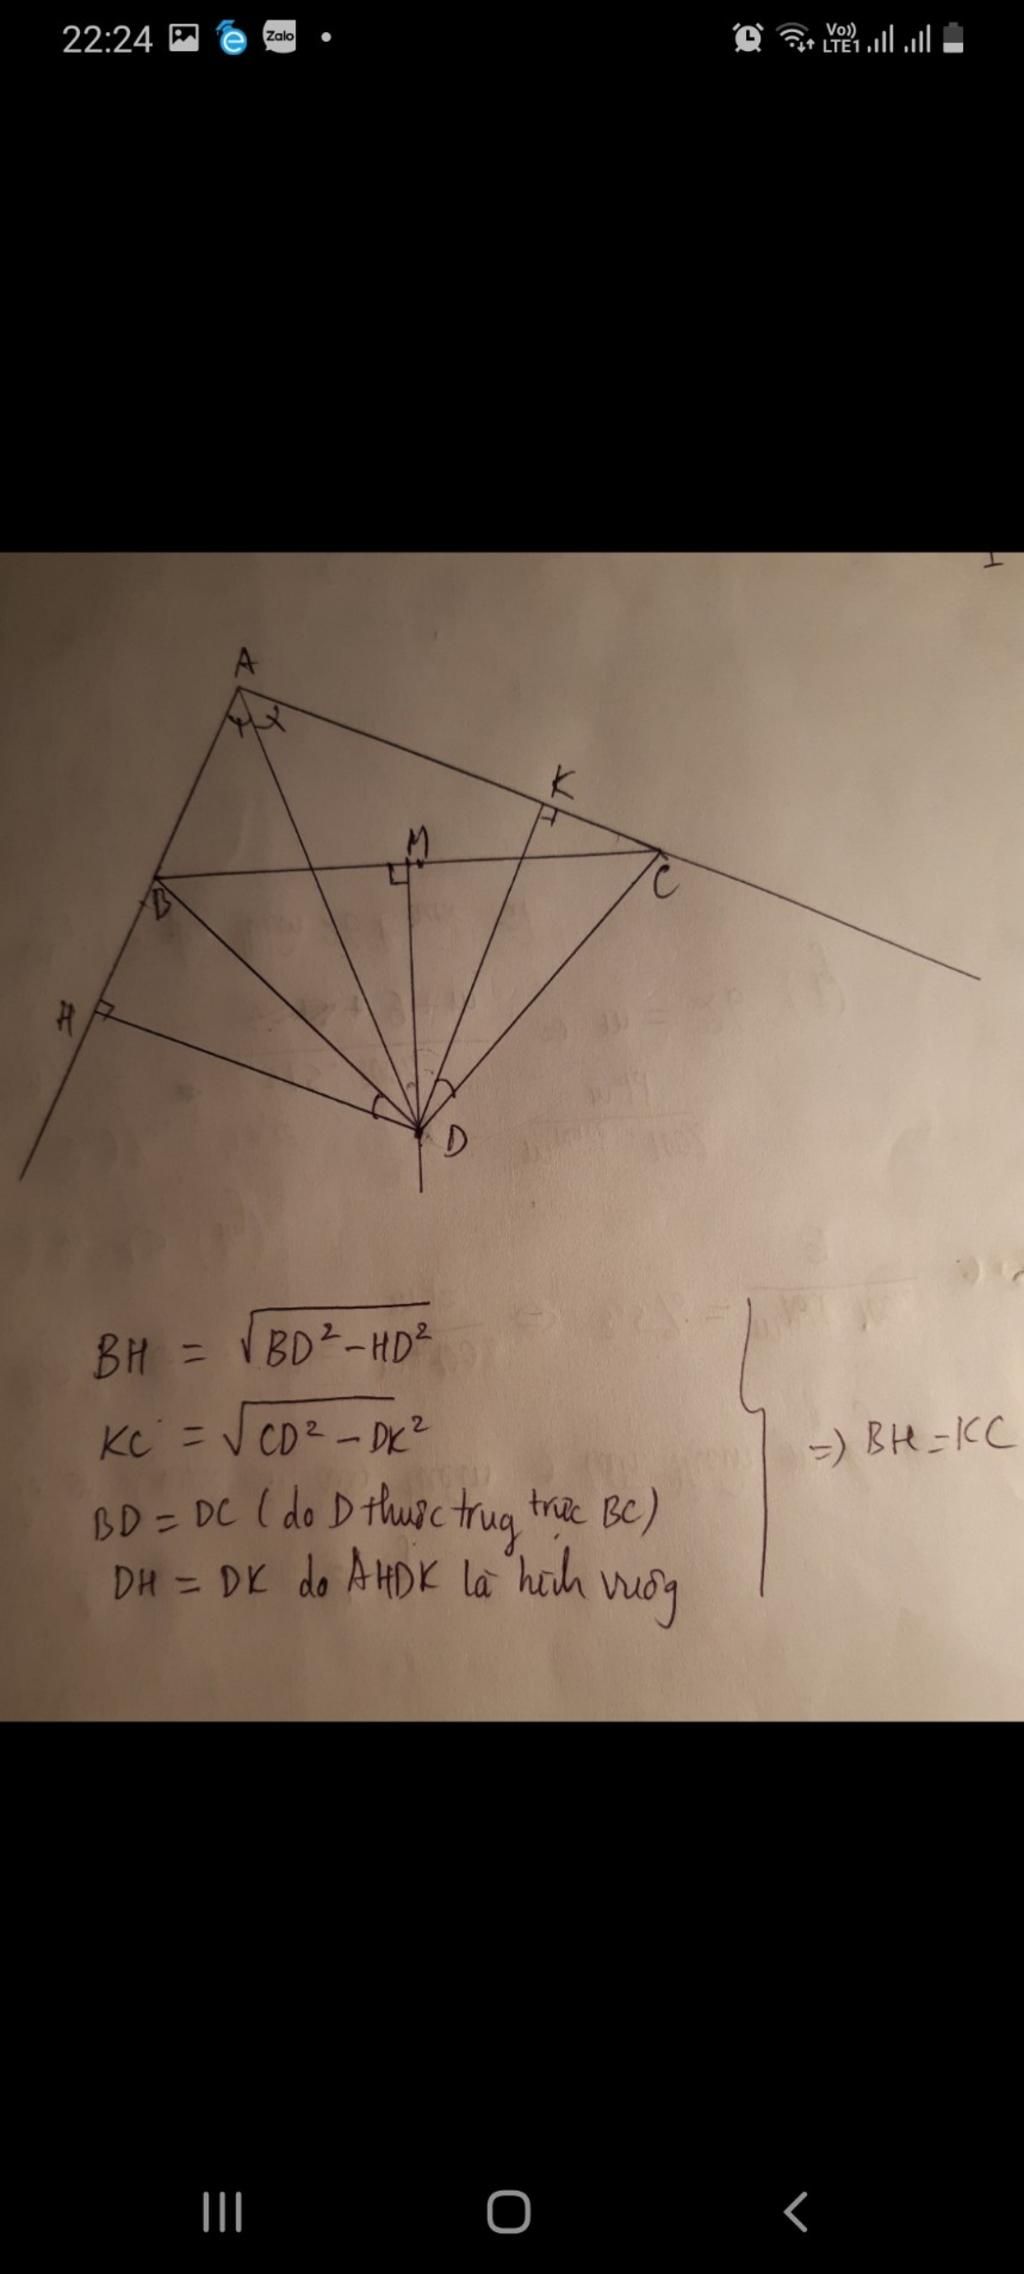 22:24 Zalo Vo)) LTE1
A
K
M
B
C
H
D
BH = √BD² - HD²
KC = √CD² - DK²
=) BH = KC
BD = DC (do D thuộc trug trực BC)
DH = DK do AHDK là hình vuôg